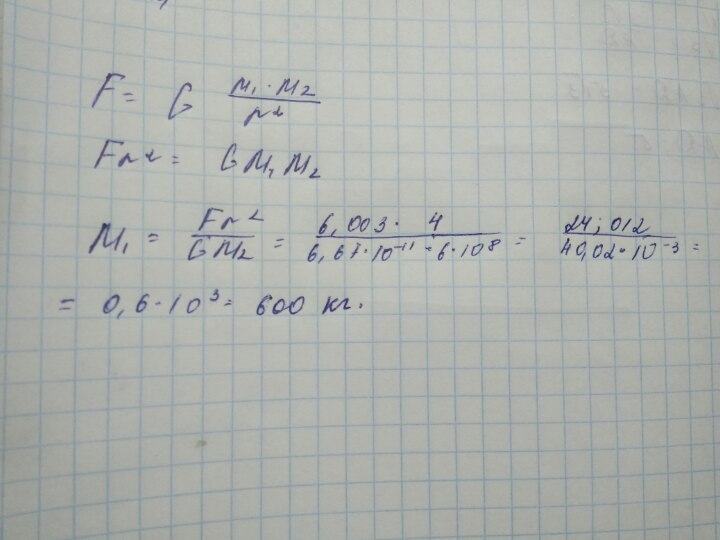 F = G M₁·M₂/r²
Fr² = GM₁M₂
M₁ = Fr²/GM₂ = 6,003·4/6,67·10⁻¹¹·6·10⁸ = 24,012/40,02·10⁻³ =
= 0,6·10³ = 600 кг.